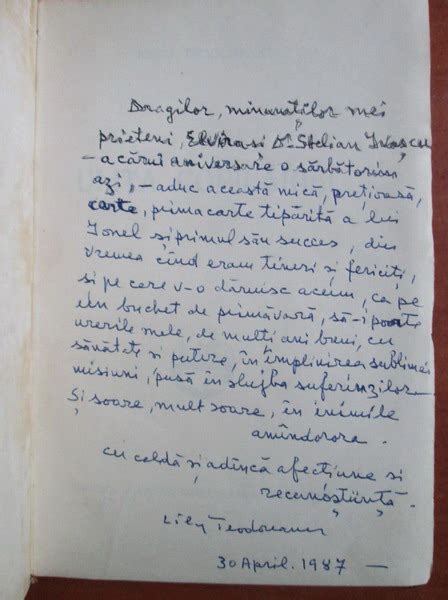 Dragilor, minunaților mei
prieteni, Elvira si Dr Stelian Ivașcu
– a cărui aniversare o sărbătorim
azi, – aduc această mică, prețioasă,
carte, prima carte tipărită a lui
Ionel si primul său succes, din
vremea cînd eram tineri si fericiți,
si pe care v-o dăruiesc acum, ca pe
un buchet de primăvară, să-i poarte
urările mele, de mulți ani buni, cu
sănătate si putere, în împlinirea sublimei
misiuni, pusă în slujba suferinzilor –
Și soare, mult soare, în inimile
amîndorora.
cu caldă și adîncă afecțiune si
recunoștiință.
Lily Teodoreanu
30 April. 1987 –